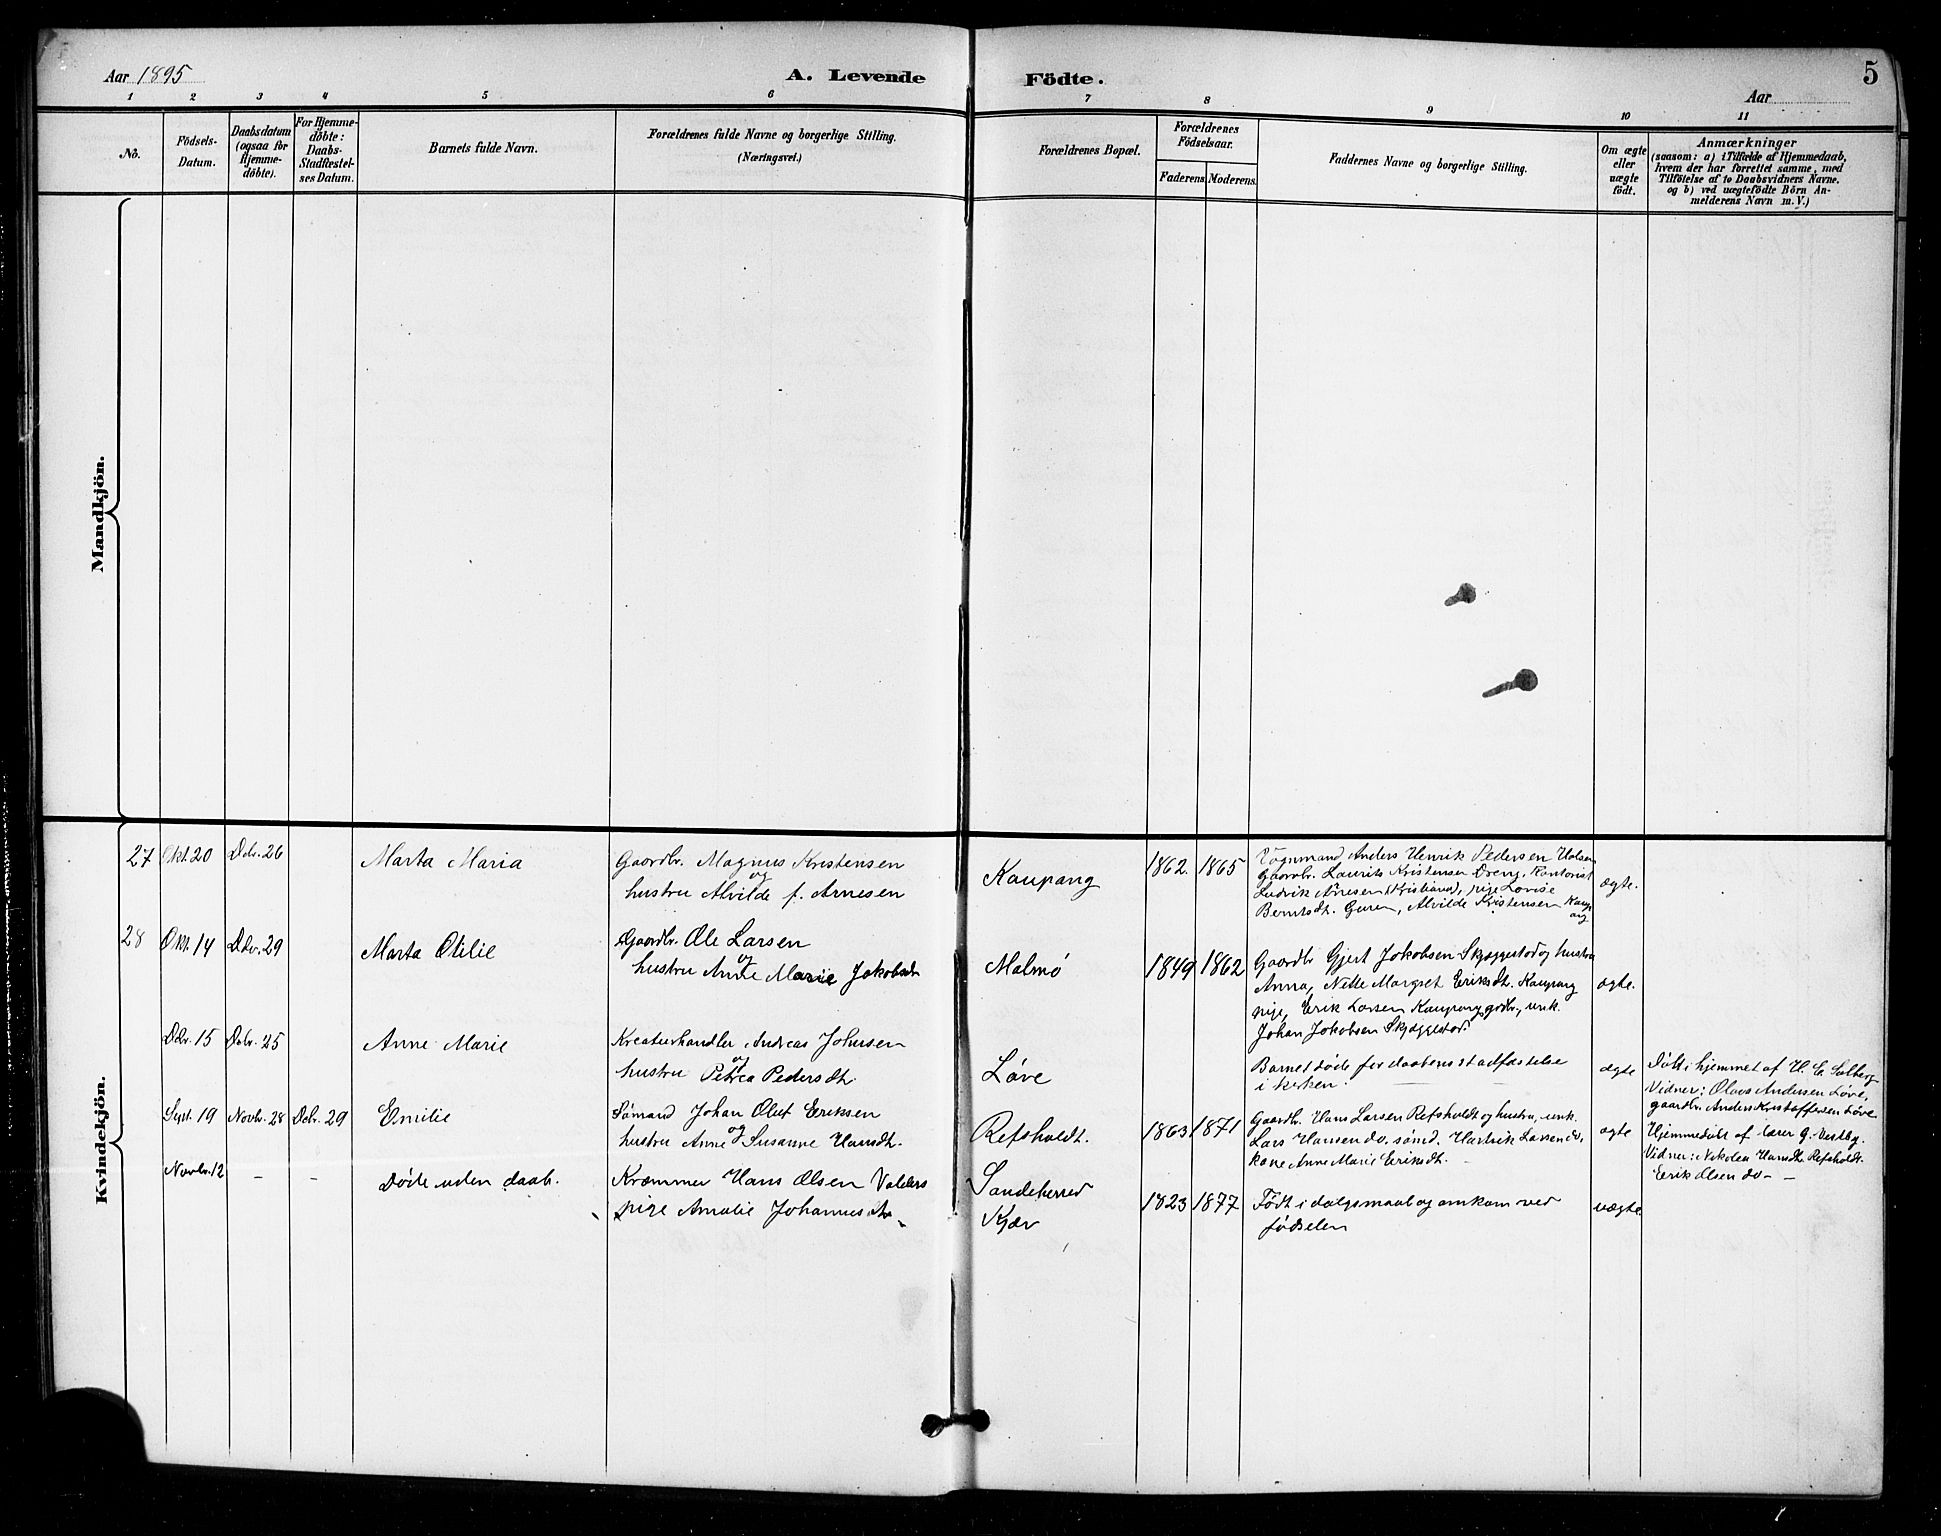 Aar 1895
A. Levende Födte.
Aar
5
1 2 3 4 5 6 7 8 9 10 11
No.
Födsels-
Datum.
Daabsdatum
(ogsaa for
Hjemme-
döbte).
For Hjemme-
döbte:
Daabs-
Stadfæstel-
ses Datum.
Barnets fulde Navn.
Forældrenes fulde Navne og borgerlige Stilling.
(Næringsvei.)
Forældrenes Bopæl.
Forældrenes
Födselsaar.
Faderens. Moderens.
Faddernes Navne og borgerlige Stilling.
Om ægte
eller
uægte
födt.
Anmærkninger
(saasom: a) i Tilfælde af Hjemmedaab,
hvem der har forrettet samme, med
Tilföielse af to Daabsvidners Navne,
og b) ved uægtefödte Börn An-
melderens Navn m. V.)
Mandkjön.
Kvindekjön.
27 Okt. 20 Dcbr. 26
Marta Maria
Gaardbr. Magnus Kristensen
og
hustru Alvilde f. Arnesen
Kaupang
1862. 1865
Anders Henrik Pedersen
Gaardbr. Laurits Kristensen Kontorist
Ludvik Arnesen (Kristiania), pige Lovise
Berntsdt. Guren, Alvilde Kristensen Kaup-
ang
ægte.
28 Okt. 14 Dcbr. 29
Marta Otilie
Gaardbr. Ole Larsen
og
hustru Anne Marie Jakobsdt.
Malmø
1849 1862
Gaardbr Gjert Jakobsen Skjæggestad og hustru
Anna, Nette Margret Eriksdt. Kaupang
pige, Erik Larsen Kaupang gdbr., unk.
Johan Jakobsen Skjæggestad.
ægte.
Dcbr. 15 Dcbr. 25
Anne Marie
Kreaturhandler Andreas Johnsen
og
hustru Petrea Pedersdt.
Løve
Barnet døde før daabens stadfæstelse
i kirken.
ægte
Døbt i hjemmet af H. C. Solberg
Vidner: Olavs Andersen Løve,
gaardbr. Anders Kristoffersen Løve
Sept. 19 Novbr. 28 Dcbr. 29
Emilie
Sømand Johan Oluf Eriksen
og
hustru Anne Susanne Hansdt.
Refsholdt.
1863 1871
Gaardbr. Hans Larsen Refsholdt og hustru, unk.
Lars Hansen do, sømd. Hartvik Larsen do,
kone Anne Marie Eriksdt. –
ægte
Hjemmedøbt af lærer G. Vestby.
Vidner: Nikolea Hansdt. Refsholdt.
Erik Olsen do – –
Novbr. 12 – –
Døde uden daab.
Kræmmer Hans Olsen Valders
pige Amalie Johannesdt.
Sandeherred
Kjær
1823 1877
Født i dølgsmaal og omkom ved
fødselen
uægte.